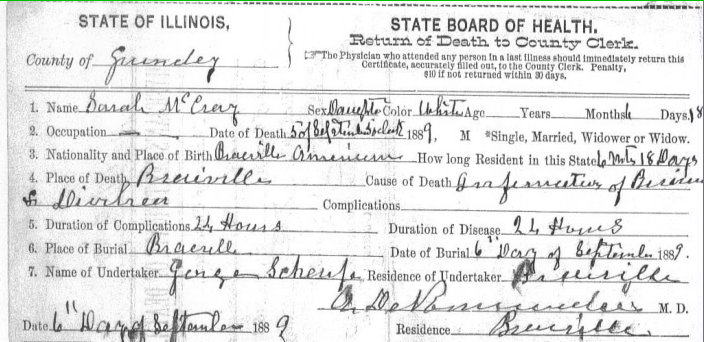 STATE OF ILLINOIS,
County of Grundey
STATE BOARD OF HEALTH.
Return of Death to County Clerk.
☞The Physician who attended any person in a last illness should immediately return this
Certificate, accurately filled out, to the County Clerk. Penalty,
$10 if not returned within 30 days.
1. Name Sarah McCray Sex Daughter Color White Age Years Months 6 Days 18
2. Occupation — Date of Death 5 of Sept 1889, M *Single, Married, Widower or Widow.
3. Nationality and Place of Birth Braeville How long Resident in this State 6 Mts 18 Days
4. Place of Death Braeville Cause of Death of
& Complications
5. Duration of Complications 24 Hours Duration of Disease 24 Hours
6. Place of Burial Braeville Date of Burial 6" Day of September 1889.
7. Name of Undertaker George Residence of Undertaker Braeville
M. D.
Date 6" Day of September 1889 Residence Braeville